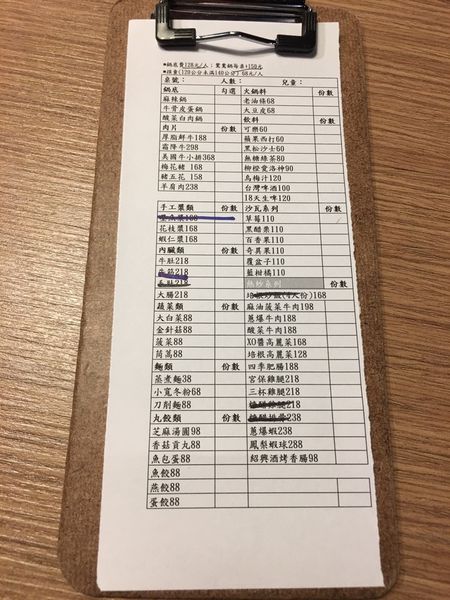 *鍋底費128元/人；鴛鴦鍋每桌+150元
*孩童(120公分未滿140公分) 68元/人
桌號： 人數： 兒童：
鍋底 勾選 火鍋料 份數
麻辣鍋 老油條68
牛骨皮蛋鍋 大豆皮68
酸菜白肉鍋 飲料 份數
肉片 份數 可樂60
厚脂鮮牛188 蘋果西打60
霜降牛298 黑松沙士60
美國牛小排368 無糖綠茶80
梅花豬 168 柳橙愛洛神90
豬五花 158 烏梅汁120
羊肩肉238 台灣啤酒100
18天生啤120
手工漿類 份數 沙瓦系列 份數
草莓110
花枝漿168 黑醋栗110
蝦仁漿168 百香果110
內臟類 份數 奇異果110
牛肚218 覆盆子110
藍柑橘110
熱炒系列 份數
大腸218 培根炒飯(4人份)168
蔬菜類 份數 麻油菠菜牛肉198
大白菜88 蔥爆牛肉188
金針菇88 酸菜牛肉188
菠菜88 XO醬高麗菜168
茼蒿88 培根高麗菜128
麵類 份數 四季肥腸188
蒸煮麵38 宮保雞腿218
小寬冬粉68 三杯雞腿218
刀削麵88
丸餃類 份數
芝麻湯圓98 蔥爆蝦288
香菇貢丸88 鳳梨蝦球288
魚包蛋88 紹興酒烤香腸98
魚餃88
燕餃88
蛋餃88